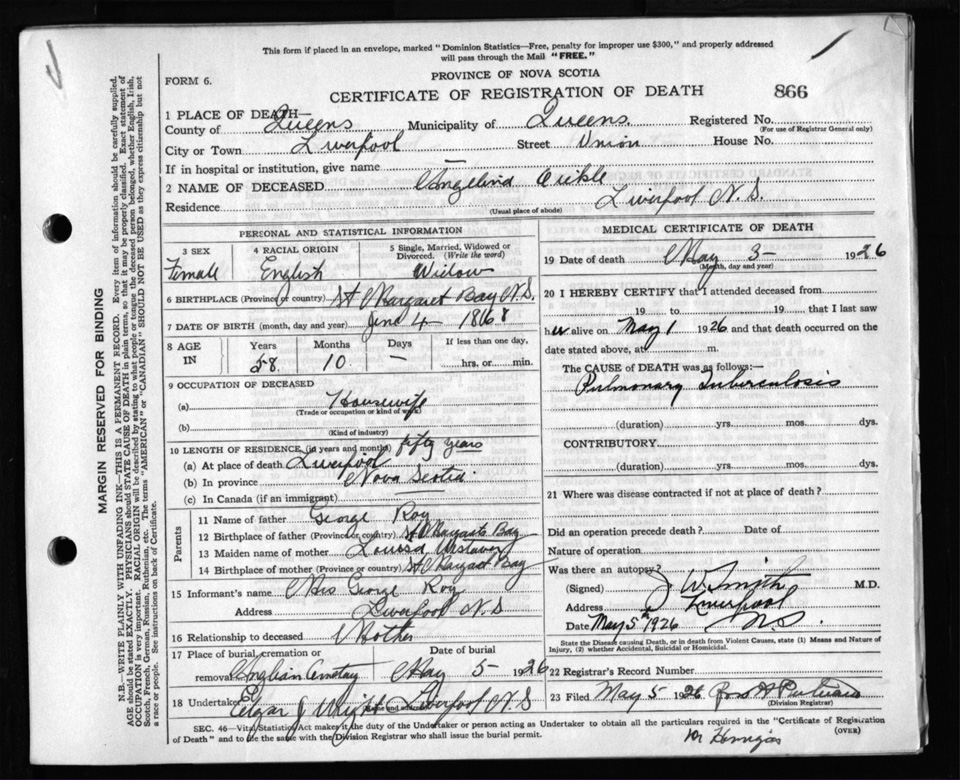 This form if placed in an envelope, marked "Dominion Statistics—Free, penalty for improper use $300," and properly addressed
will pass through the Mail "FREE."
PROVINCE OF NOVA SCOTIA
FORM 6.
CERTIFICATE OF REGISTRATION OF DEATH
866
1 PLACE OF DEATH—
County of Queens Municipality of Queens Registered No.
(For use of Registrar General only)
City or Town Liverpool Street Union House No.
If in hospital or institution, give name —
2 NAME OF DECEASED Angelina
Residence Liverpool N.S.
(Usual place of abode)
PERSONAL AND STATISTICAL INFORMATION
3 SEX 4 RACIAL ORIGIN 5 Single, Married, Widowed or
Divorced. (Write the word)
Female English Widow
6 BIRTHPLACE (Province or country) St Margaret Bay N.S.
7 DATE OF BIRTH (month, day and year) June 4 - 1868
8 AGE IN Years Months Days If less than one day,
58 10 — hrs. or min.
9 OCCUPATION OF DECEASED
(a) Housewife
(Trade or occupation or kind of work)
(b)
(Kind of industry)
10 LENGTH OF RESIDENCE (in years and months) fifty years
(a) At place of death Liverpool
(b) In province Nova Scotia
(c) In Canada (if an immigrant)
Parents
11 Name of father George Roy
12 Birthplace of father (Province or country) St Margarets Bay
13 Maiden name of mother Louisa
14 Birthplace of mother (Province or country) St Margaret Bay
15 Informant's name Mrs George Roy
Address Liverpool N.S
16 Relationship to deceased Mother
17 Place of burial, cremation or Date of burial
removal Cemetary May 5 - 1926
18 Undertaker Edgar J Wright Liverpool N.S
MEDICAL CERTIFICATE OF DEATH
19 Date of death May 3 - 1926
(Month, day and year)
20 I HEREBY CERTIFY that I attended deceased from
19 to 19 that I last saw
her alive on May 1 1926 and that death occurred on the
date stated above, at m.
The CAUSE OF DEATH was as follows:—
Pulmonary Tuberculosis
(duration) yrs. mos. dys.
CONTRIBUTORY
(duration) yrs. mos. dys.
21 Where was disease contracted if not at place of death?
Did an operation precede death? Date of
Nature of operation
Was there an autopsy?
(Signed) J W Smith M.D.
Address Liverpool
Date May 5th 1926 N.S.
State the Disease causing Death, or in death from Violent Causes, state (1) Means and Nature of
Injury, (2) whether Accidental, Suicidal or Homicidal.
22 Registrar's Record Number
23 Filed May 5 1926
(Division Registrar)
SEC. 46—Vital Statistics Act makes it the duty of the Undertaker or person acting as Undertaker to obtain all the particulars required in the "Certificate of Registration
of Death" and to file the same with the Division Registrar who shall issue the burial permit.
(OVER)
MARGIN RESERVED FOR BINDING
N.B.—WRITE PLAINLY WITH UNFADING INK—THIS IS A PERMANENT RECORD. Every item of information should be carefully supplied.
AGE should be stated EXACTLY. PHYSICIANS should STATE CAUSE OF DEATH in plain terms, so that it may be properly classified. Exact statement of
OCCUPATION is very important. RACIAL ORIGIN will be described by stating to what people or tongue the deceased person belonged, whether English, Irish,
Scotch, French, German, Russian, Ruthenian, etc. The terms "AMERICAN" or "CANADIAN" SHOULD NOT BE USED as they express citizenship but not
a race or people. See instructions on back of Certificate.